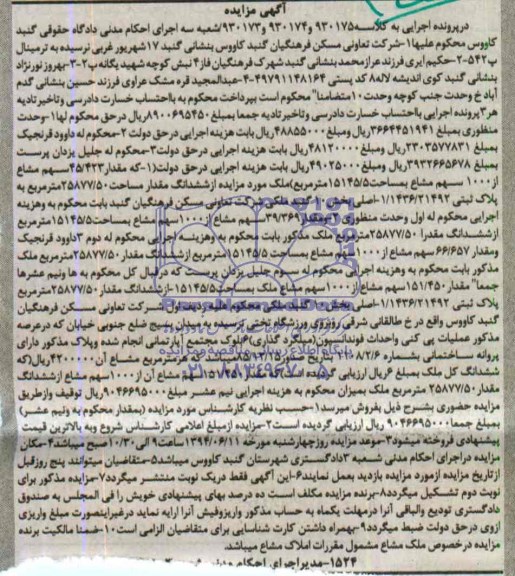 آگهی مزایده
در پرونده اجرایی به کلاسه ۹۳۰۱۷۵و ۹۳۰۱۷۴و ۹۳۰۱۷۳/شعبه سه اجرای احکام مدنی دادگاه حقوقی گنبد
کاووس محکوم علیها۱-شرکت تعاونی مسکن فرهنگیان گنبد کاووس بنشانی گنبد ۱۷شهریور غربی نرسیده به ترمینال
پ۵۴۲-۲-حکیم ایری فرزند عرازمحمد بنشانی گنبد شهرک فرهنگیان فاز۲ نبش کوچه شهید یگانه پ۲-۳-بهروز نورنژاد
بنشانی گنبد کوی اندیشه لاله۸ کد پستی ۴۹۷۹۱۱۴۸۱۶۴-۴-عبدالمجید قره مشک عراوی فرزند حسین بنشانی گدم
آباد خ وحدت جنب کوچه وحدت۱۰متضامنا" محکوم است بپرداخت محکوم به بااحتساب خسارت دادرسی وتاخیر تادیه
هر۳پرونده اجرایی بااحتساب خسارت دادرسی وتاخیرتادیه جمعا بمبلغ ۸۹۰۰۶۹۵۴۵۰ریال درحق محکوم لها۱-وحدت
منظوری بمبلغ ۳۶۶۴۴۵۱۹۴۱ریال ومبلغ ۴۸۸۵۵۰۰۰ریال بابت هزینه اجرایی درحق دولت ۲-محکوم له داوود قرنجیک
بمبلغ ۲۳۰۳۵۷۷۸۳۱ریال ومبلغ ۴۸۱۲۰۰۰۰ریال وبابت هزینه اجرایی درحق دولت۳-محکوم له جلیل یزدان پرست
بمبلغ ۳۹۳۲۶۶۵۶۷۸ریال ومبلغ ۴۹۰۲۵۰۰۰ریال بابت هزینه اجرایی درحق دولت(۱-که مقدار۴۵/۴۲۳سهم مشاع
از۱۰۰۰ سهم مشاع بمساحت ۱۵۱۴۵/۵مترمربع)ملک مورد مزایده ازششدانگ مقدار مساحت۲۵۸۷۷/۵۰مترمربع به
پلاک ثبتی ۱/۱۴۳۶/۲۱۴۹۲-اصلی بخش ۱۰ گنبد ملکی شرکت تعاونی مسکن فرهنگیان گنبد بابت محکوم به وهزینه
اجرایی محکوم له اول وحدت منظوری ۲-ومقدار۳۹/۳۶۹سهم مشاع از۱۰۰۰سهم مشاع بمساحت ۱۵۱۴۵/۵مترمربع
ازششدانگ مقدرا ۲۵۸۷۷/۵۰مترمربع ملک مذکور بابت محکوم به وهزینه اجرایی محکوم له دوم ۳داوود قرنجیک
ومقدار ۶۶/۶۵۷ سهم مشاع از۱۰۰۰سهم مشاع بمساحت ۱۵۱۴۵/۵مترمربع ازششدانگ مقدار ۲۵۸۷۷/۵۰مترمربع ملک
مذکور بابت محکوم به وهزینه اجرایی محکوم له سوم جلیل یزدان پرست که درقبال کل محکوم به ها ونیم عشرها
جمعا" مقدار ۱۵۱/۴۵۰سهم مشاع از۱۰۰۰سهم مشاع ملک بمساحت ۱۵۱۴۵/۵-ازششدانگ مقدار ۲۵۸۷۷/۵۰مترمربع
پلاک ثبتی ۱/۱۴۳۶/۲۱۴۹۲-اصلی بخش ۱۰ گنبد ملکی محکوم علیه ردیف اول شرکت تعاونی مسکن فرهنگیان
گنبد کاووس واقع در خ طالقانی شرقی روبروی ورزشگاه تختی نرسیده به میدان بسیج ضلع جنوبی خیابان که درعرصه
مذکور عملیات پی کنی واحداث فونداسیون(میلگرد گذاری)۶بلوک مجتمع آپارتمانی انجام شده وپلاک مذکور دارای
پروانه ساختمانی بشماره
ششدانگ کل ملک بمبلغ
مقدار ۲۵۸۷۷/۵۰ مترمربع ملک بمیزان محکوم به هزینه اجرایی نیم عشر مبلغ ۹۰۴۶۶۹۵۰۰۰ریال توقیف وازطریق
مزایده حضوری بشرح ذیل بفروش میرسد۱-حسب نظریه کارشناس مورد مزایده (بمقدار محکوم به ونیم عشر)
بمبلغ جمعا۹۰۴۶۶۹۵۰۰۰ ریال ارزیابی گردیده است۲-مزایده ازمبلغ اعلامی کارشناس شروع وبه بالاترین قیمت
پیشنهادی فروخته میشود۳-موعد مزایده روزچهارشنبه مورخه ۱۳۹۴/۰۶/۱۱ساعت۹ الی ۱۰/۳۰صبح میباشد۴-مکان
مزایده دراجرای احکام مدنی شعبه ۳دادگستری شهرستان گنبد کاووس میباشد۵-متقاضیان میتوانند پنج روزقبل
ازتاریخ مزایده ازمورد مزایده بازدید بعمل نمایند۶-این آگهی فقط دریک نوبت منتشر میگردد۷-مزایده مذکور برای
نوبت دوم تشکیل میگردد۸-برنده مزایده مکلف است ده درصد بهای پیشنهادی خویش را فی المجلس به صندوق
دادگستری تودیع والباقی آنرا درمهلت یکماه به حساب مذکور واریزوفیش آنرا ارایه نماید درغیراینصورت مبلغ واریزی
ازوی درحق دولت ضبط میگردد۹-بهمراه داشتن کارت شناسایی برای متقاضیان الزامی است۱۰-ضمنا مالکیت برنده
مزایده درخصوص ملک مشاع مشمول مقررات املاک مشاع میباشد.
۱۵۲۴-مدیراجرای احکام مدنی